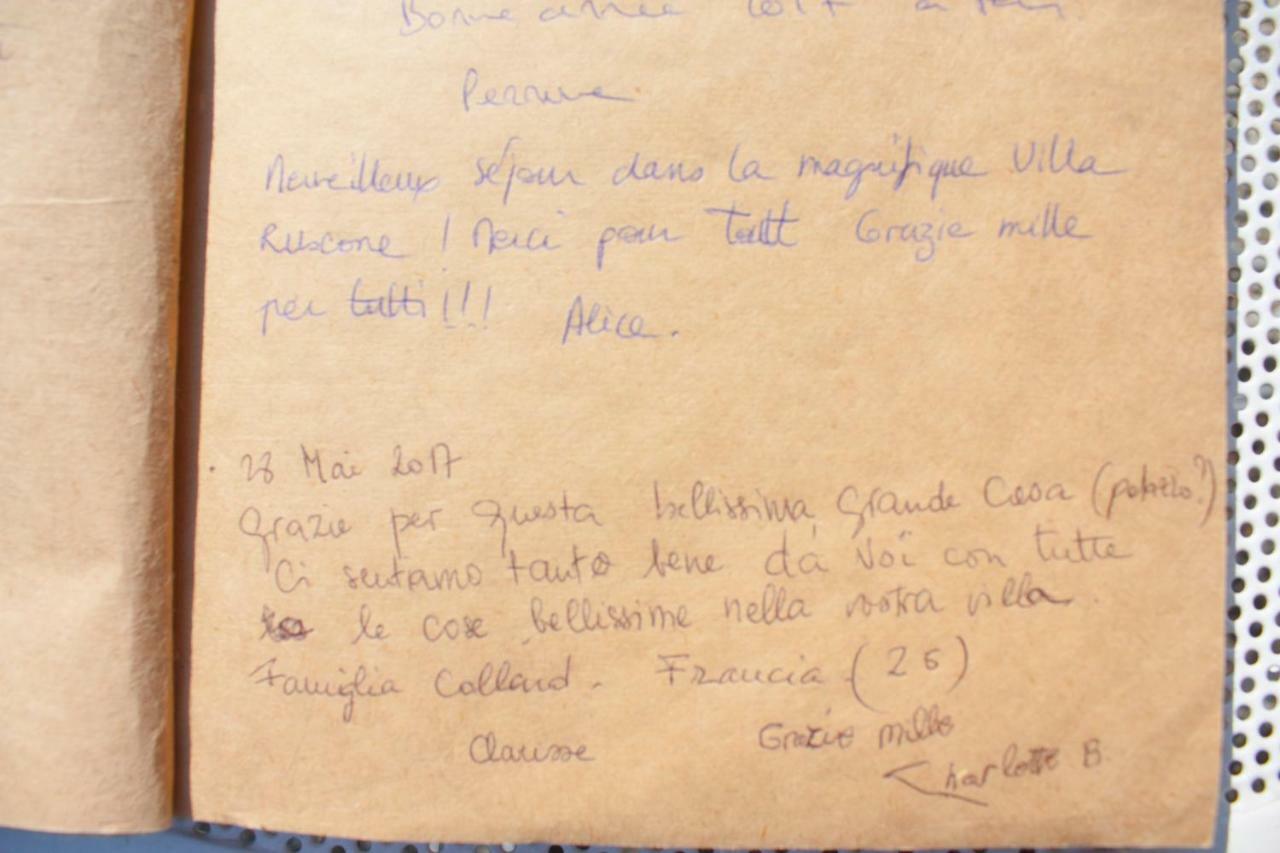 Bonne année 2017 à
Perrine
Merveilleux séjour dans la magnifique Villa
Ruscone ! Merci pour tout Grazie mille
per tutti !!! Alice.
28 Mai 2017
Grazie per questa bellissima grande Casa (palazzo?)
Ci sentiamo tanto bene da Voï con tutte
le cose bellissime nella vostra villa.
Famiglia Colland. Francia (25)
Clarisse
Grazie mille
Charlotte B.